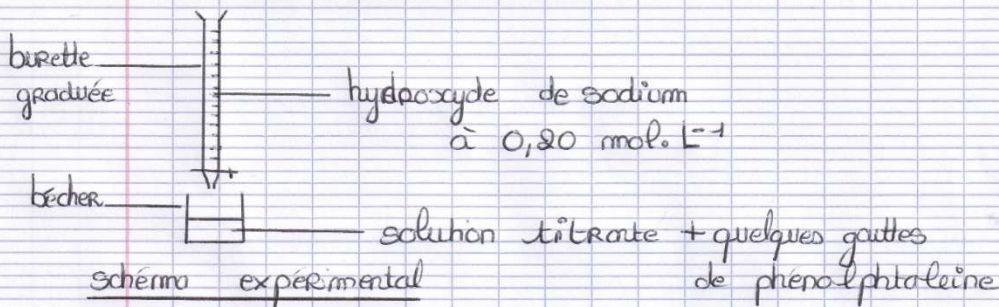 burette
graduée
hydroxyde de sodium
à 0,20 mol. L-1
bécher
solution titrante + quelques gouttes
de phénolphtaleine
schéma expérimental